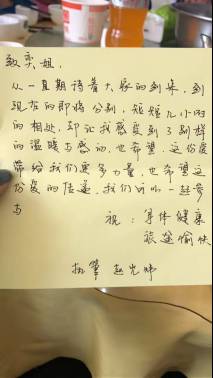 致奕姐,
从一直期待着大家的到来,到
现在的即将分别,短短几小时
的相处,却让我感受到了别样
的温暖与感动,也希望,这份爱
带给我们更多力量,也希望这
份爱的传递,我们可以一起参
与
祝:身体健康
旅途愉快
执笔 赵光